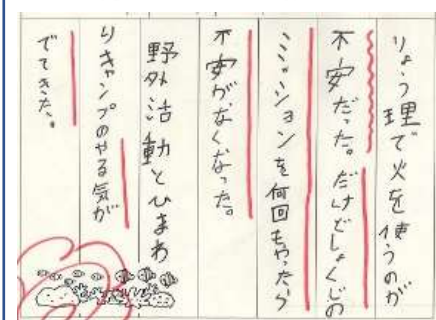 りょう理で火を使うのが
不安だった。だけどしょくじの
ミッションを何回もやったら
不安がなくなった。
野外活動とひまわ
りキャンプのやる気が
でてきた。